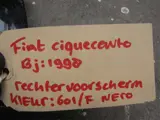 Fiat ciquecento
Bj:1998
rechtervoorscherm
Kleur:601/F NERO